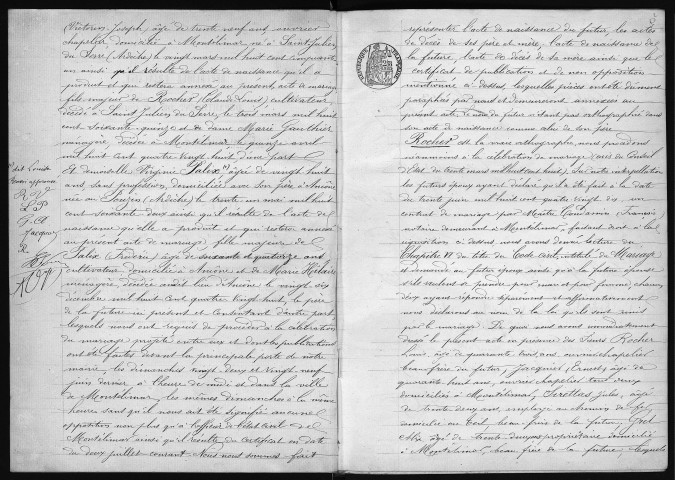 Victorin Joseph, âgé de trente neuf ans ouvrier
chapelier, domicilié à Montélimar, né à Saint Julien
du Serre (Ardèche) le vingt mars mil huit cent cinquante
un ainsi qu'il résulte de l'acte de naissance qu'il a
produit et qui restera annexé au présent acte de mariage
fils majeur de Rocher (Claude Louis) cultivateur,
décédé à Saint Julien du Serre, le trois mars mil huit
cent soixante quinze et de dame Marie Gauthier
ménagère, décédée à Montélimar le quinze avril
mil huit cent quatre vingt huit d'une part
Et demoiselle Virginie Palix, âgée de vingt huit
ans, sans profession, domiciliée avec son père à Ancône
née au (Ardèche) le trente un mai mil huit
cent soixante deux ainsi qu'il résulte de l'acte de
naissance qu'elle a produit et qui restera annexé
au présent acte de mariage, fille majeure de
Palix (Frédéric) âgé de soixante et quatorze ans
cultivateur, domicilié à Ancône et de Marie
ménagère, décédée audit lieu Ancône le vingt six
décembre mil huit cent quatre vingt huit, le père
de la future ici présent et consentant d'autre part
lesquels nous ont requis de procéder à la célébration
du mariage projeté entre eux et dont les publications
ont été faites devant la principale porte de notre
mairie, les dimanches vingt deux et vingt neuf
juin dernier à l'heure de midi et dans la ville
de Montélimar, les mêmes dimanches à la même
heure sans qu'il nous ait été signifié aucune
opposition non plus qu'à l'officier de l'état civil de
Montélimar ainsi qu'il résulte du certificat en date
du deux juillet courant. Nous nous sommes fait
représenter l'acte de naissance du futur, les actes
de décès de ses père et mère, l'acte de naissance de
la future, l'acte de décès de sa mère ainsi que le
certificat de publication et de non opposition
mentionné ci-dessus, lesquelles pièces ont été dûment
paraphées par nous et demeureront annexées au
présent acte. Le nom du futur n'étant pas orthographié dans
son acte de naissance comme celui de son père
Rocher est la vraie orthographe, nous procédons
néanmoins à la célébration du mariage (avis du Conseil
d'État du trente mars mil huit cent huit). Sur notre interpellation
les futurs époux ayant déclaré qu'il a été fait à la date
du trente juin mil huit cent quatre vingt dix un
contrat de mariage par Maître (François)
notaire demeurant à Montélimar, faisant droit à la
réquisition ci dessus nous avons donné lecture du
Chapitre VI du titre du Code civil, intitulé du Mariage
et demandé au futur époux ainsi qu'à la future épouse
s'ils veulent se prendre pour mari et pour femme; chacun
d'eux ayant répondu séparément et affirmativement
nous déclarons au nom de la loi qu'ils sont unis
par le mariage. De quoi nous avons immédiatement
dressé le présent acte en présence des Sieurs Rocher
Louis, âgé de quarante trois ans, ouvrier chapelier
beau frère du futur, Jacquier (Ernest) âgé de
quarante huit ans, ouvrier chapelier tous deux
domiciliés à Montélimar, Jules, âgé
de trente deux ans, employé au chemin de fer
domicilié au Teil beau frère de la future,
Alix âgé de trente propriétaire domicilié
à Montélimar, beau frère de la future, lesquels